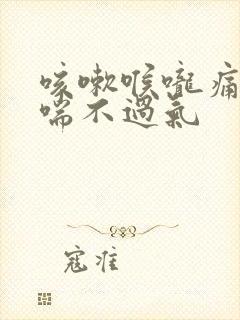 咳嗽喉嚨痛
喘不過氣
寇准